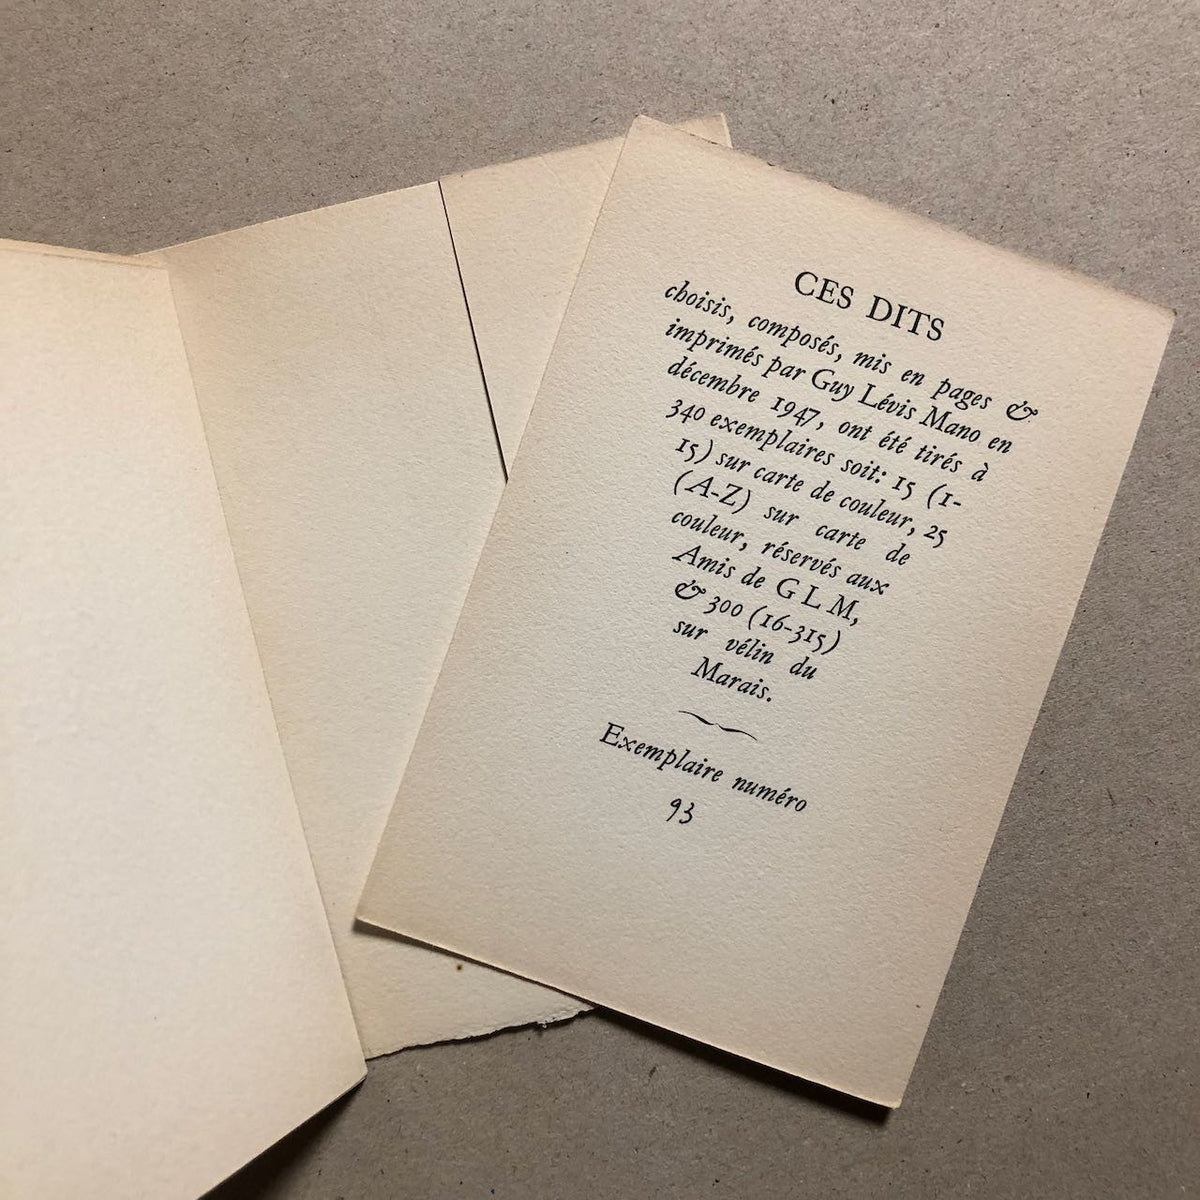 CES DITS
choisis, composés, mis en pages &
imprimés par Guy Lévis Mano en
décembre 1947, ont été tirés à
340 exemplaires soit: 15 (1-
15) sur carte de couleur, 25
(A-Z) sur carte de
couleur, réservés aux
Amis de G L M,
& 300 (16-315)
sur vélin du
Marais.
Exemplaire numéro
93